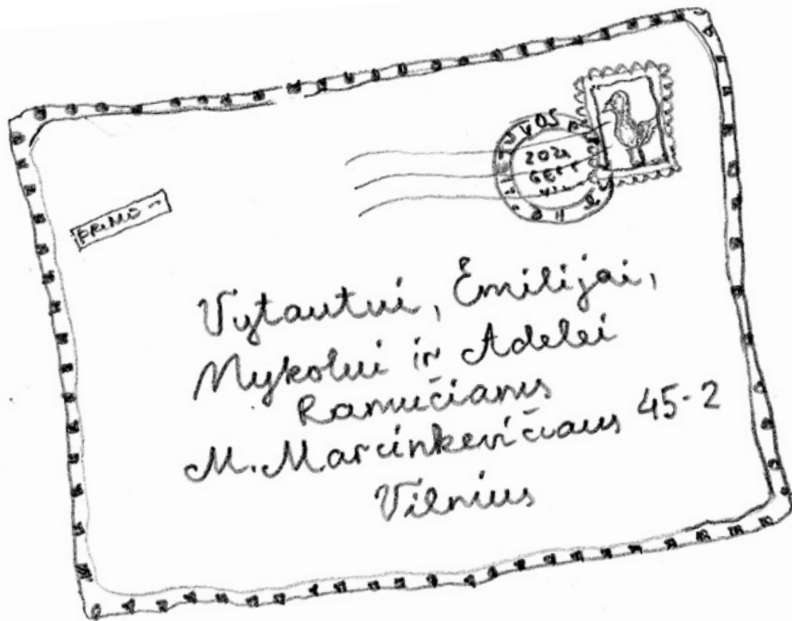 LIETUVOS
2021
PRIMO
Vytautui, Emilijai,
Mykolui ir Adelei
Ramučiams
M. Marcinkevičiaus 45-2
Vilnius